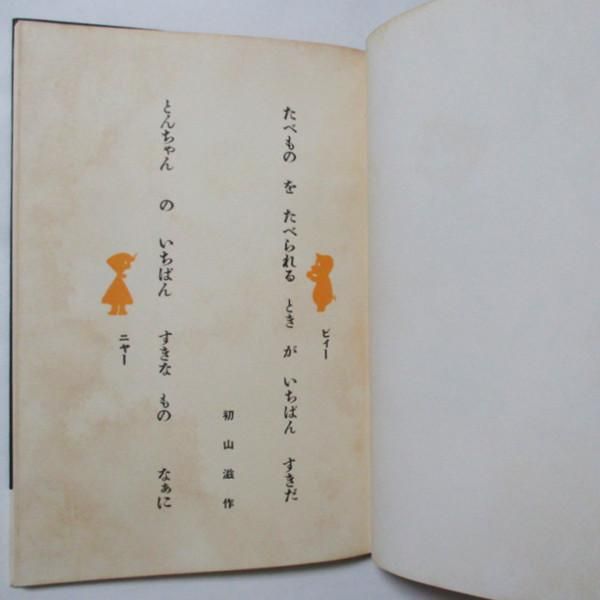 ピィー
たべもの を たべられる とき が いちばん すきだ
初山滋作
とんちゃん の いちばん すきな もの なぁに
ニャー